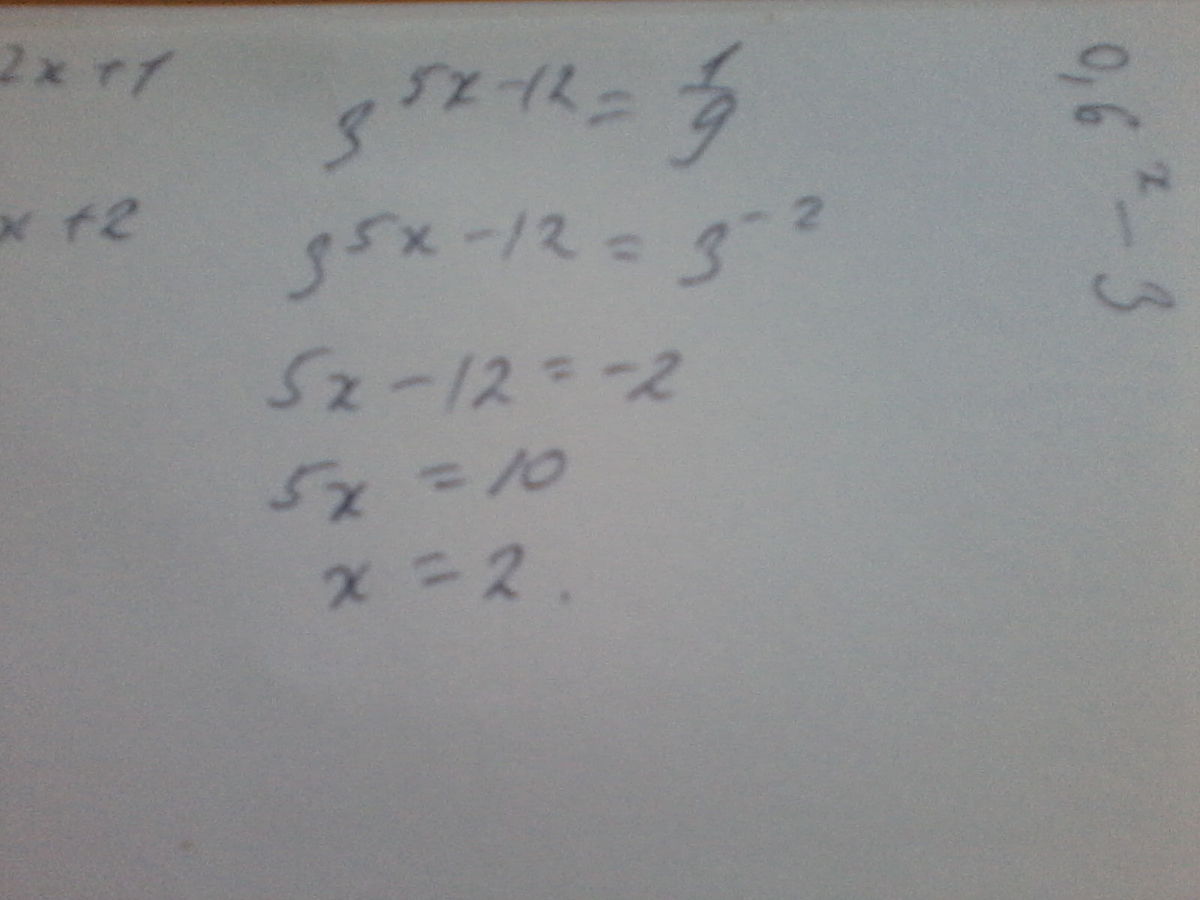 2x+1
x+2
3^{5x-12} = 1/9
3^{5x-12} = 3^{-2}
5x-12=-2
5x = 10
x = 2.
0,6^{x}-3